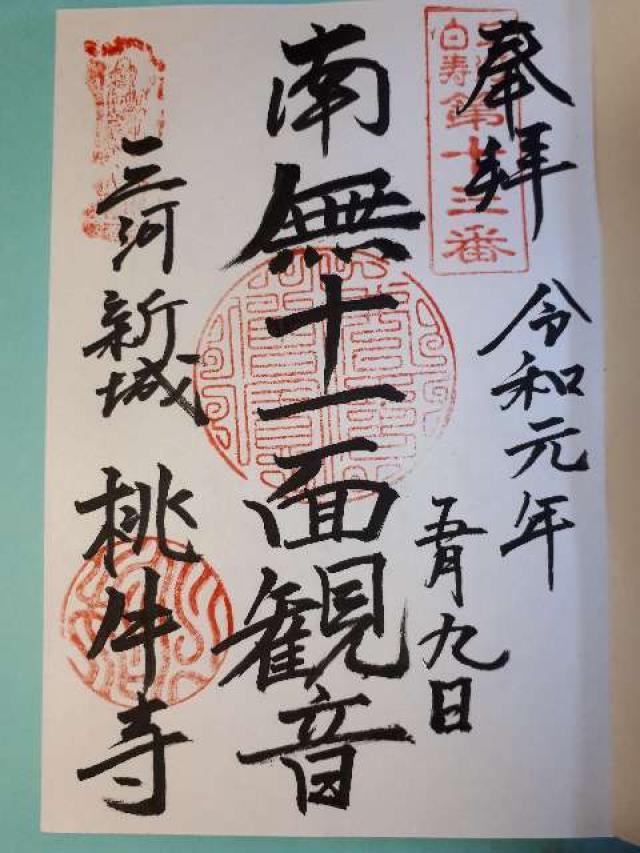 奉拝
白寿
第十三番
令和元年
五月九日
南無十一面観音
三河新城 桃牛寺